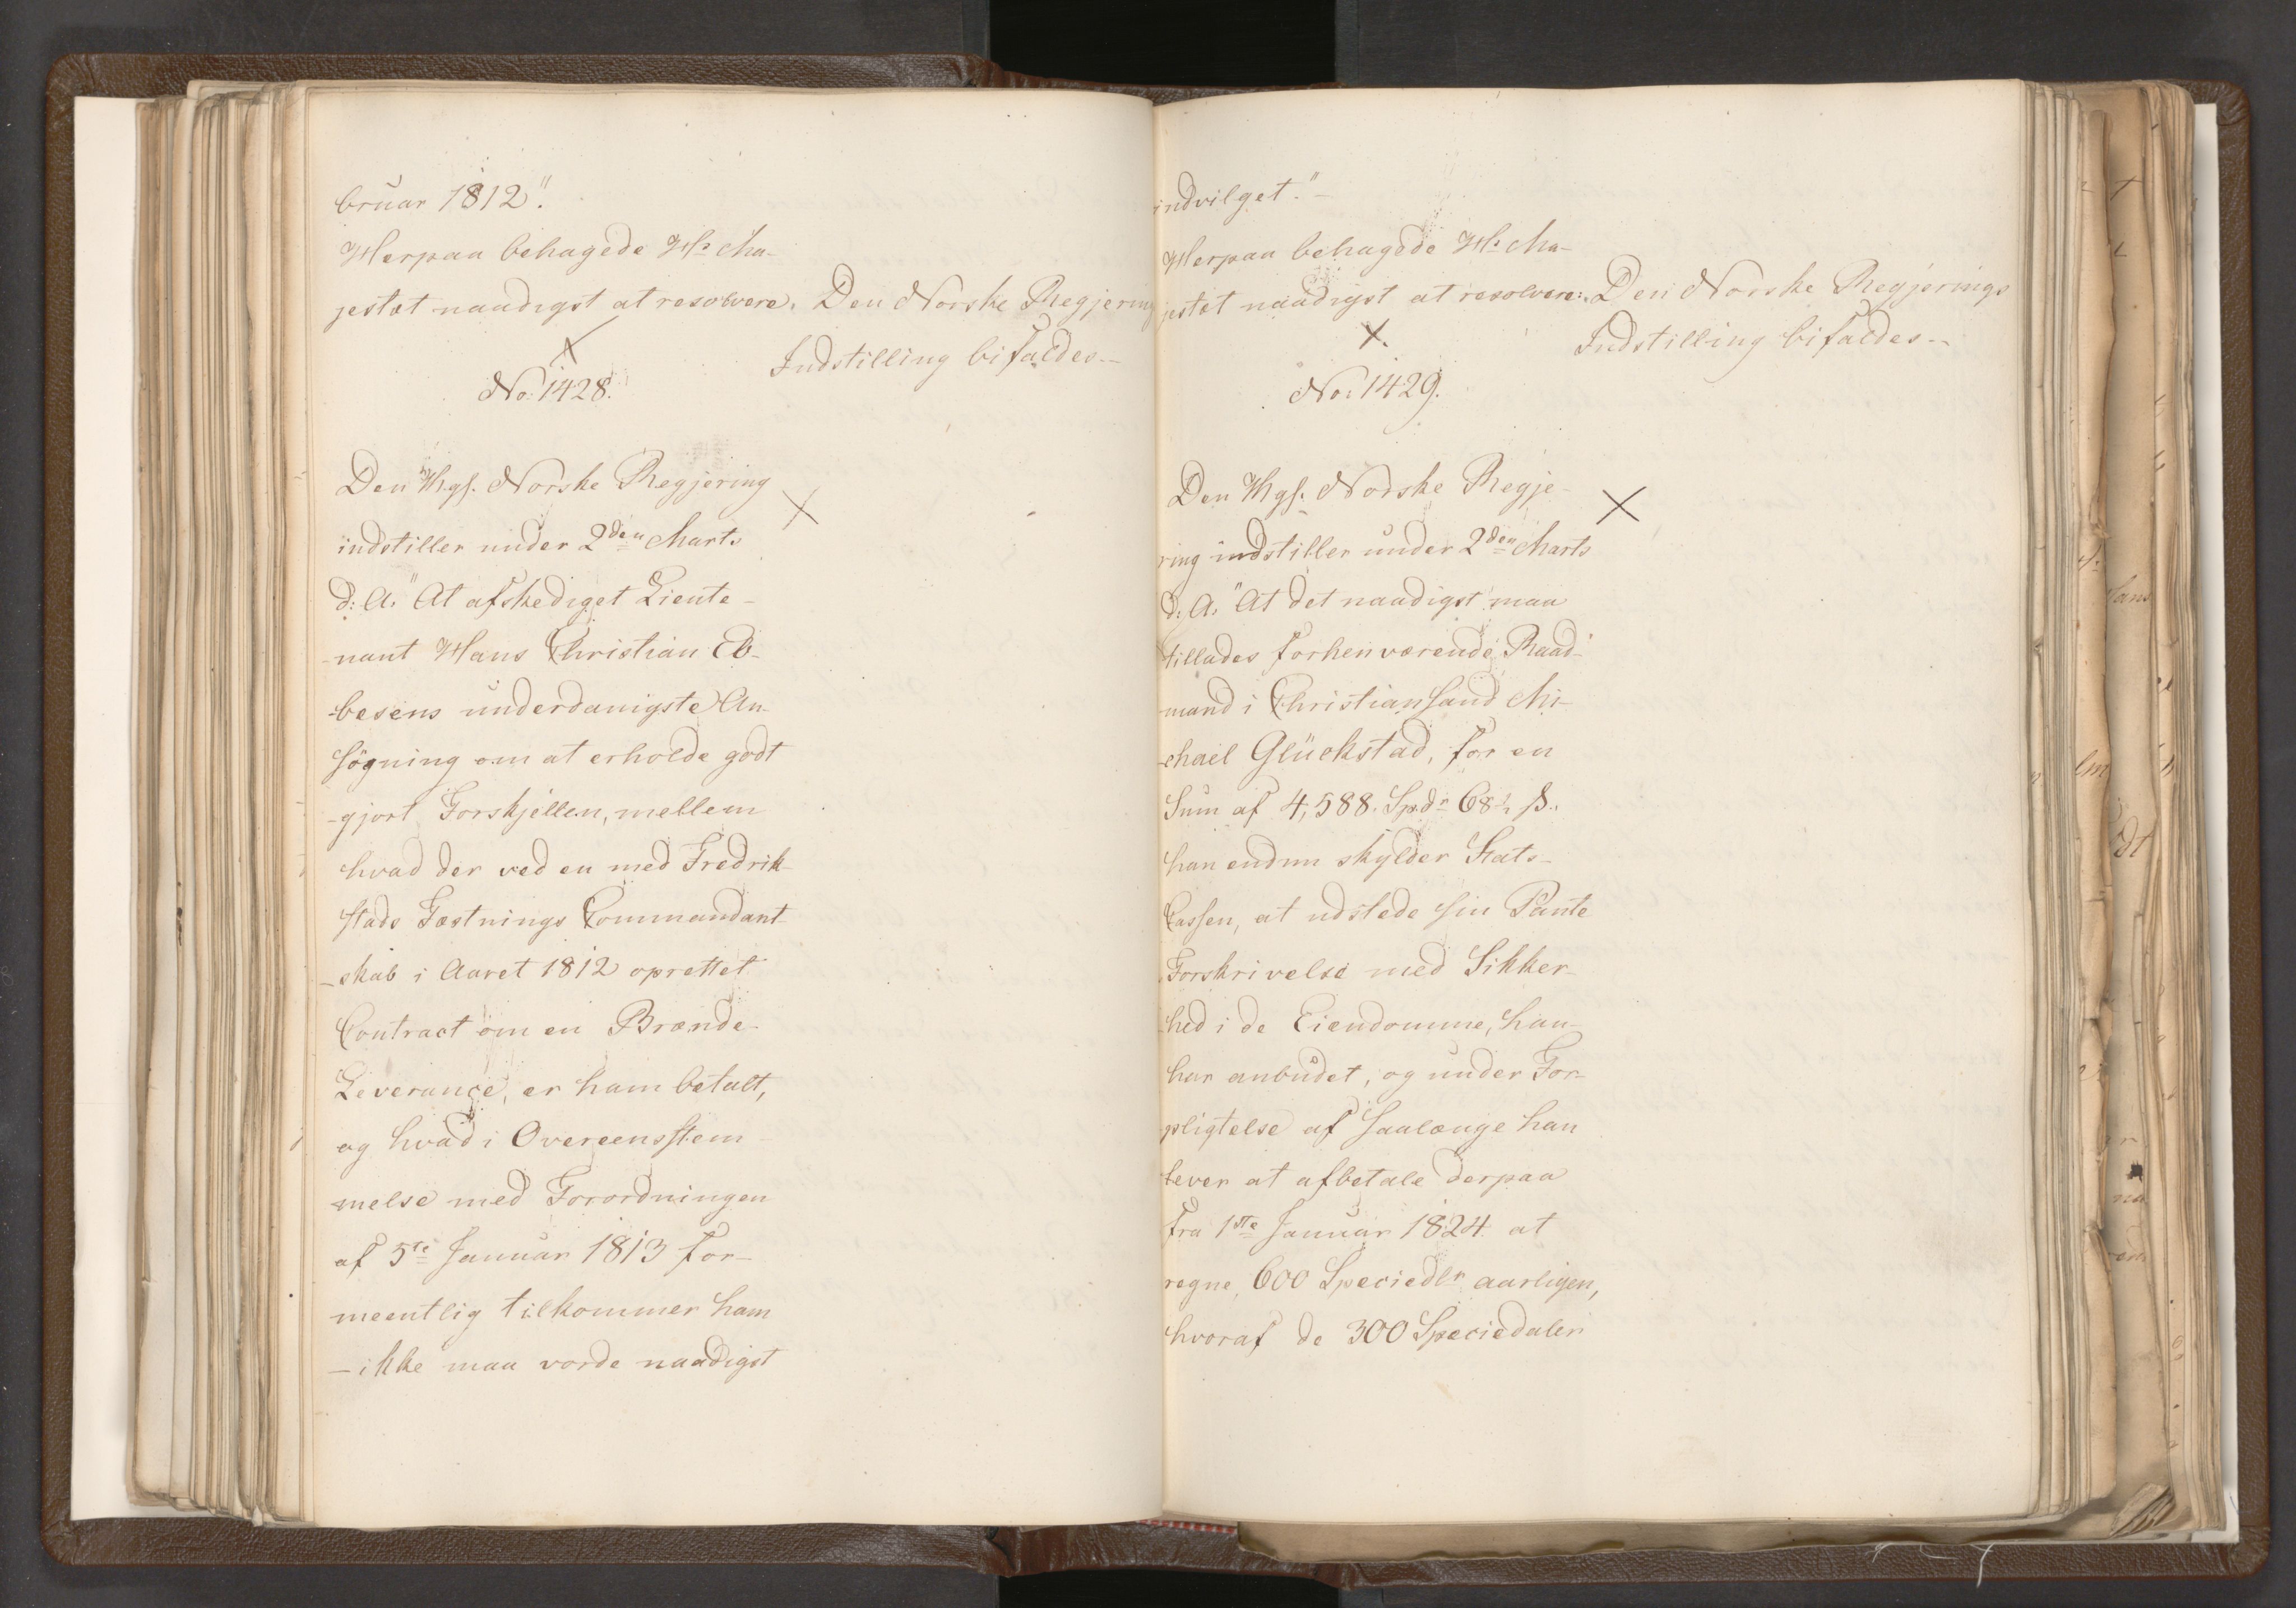 bruar 1812".
Herpaa behagede Hs Ma-
jestæt naadigst at resolvere.
Den Norske Regjering
Indstilling bifaldes.-
No. 1428.
Den Kgs. Norske Regjering
indstiller under 2den Marts
d: A. "At afskediget Liente-
-nant Hans Christian Eb-
-besens underdanigste An-
søgning om at erholde godt
-gjort Forskjellen, mellem
hvad der ved en med Fredrik-
stads Fæstnings Commandant-
-skab i Aaret 1812 oprettet
Contract om en Brænde-
Leverance, er ham betalt,
og hvad i Overeensstem-
melse med Forordningen
af 5te Januar 1813 for-
meentlig tilkommer ham
-ikke maa vorde naadigst
indvilget."-
Herpaa behagede Hs Ma-
jestæt naadigst at resolvere:
Den Norske Regjerings
Indstilling bifaldes.-
No. 1429.
Den Kgs. Norske Regje-
ring indstiller under 2den Marts
d: A. "At det naadigst maa
tillades forhenværende Raad-
mand i Christiansand Mi-
-chael Glückstad, for en
Sum af 4,588. Spdr 68 ß.
han endnu skylder Stats-
Cassen, at udstede sin Pante
Forskrivelse med Sikker-
-hed i de Eiendomme, han
har anbudet, og under For-
pligtelse af saalænge han
lever at afbetale derpaa
fra 1ste Januar 1824 at
regne, 600 Speciedlr aarligen,
hvoraf de 300 Speciedaler